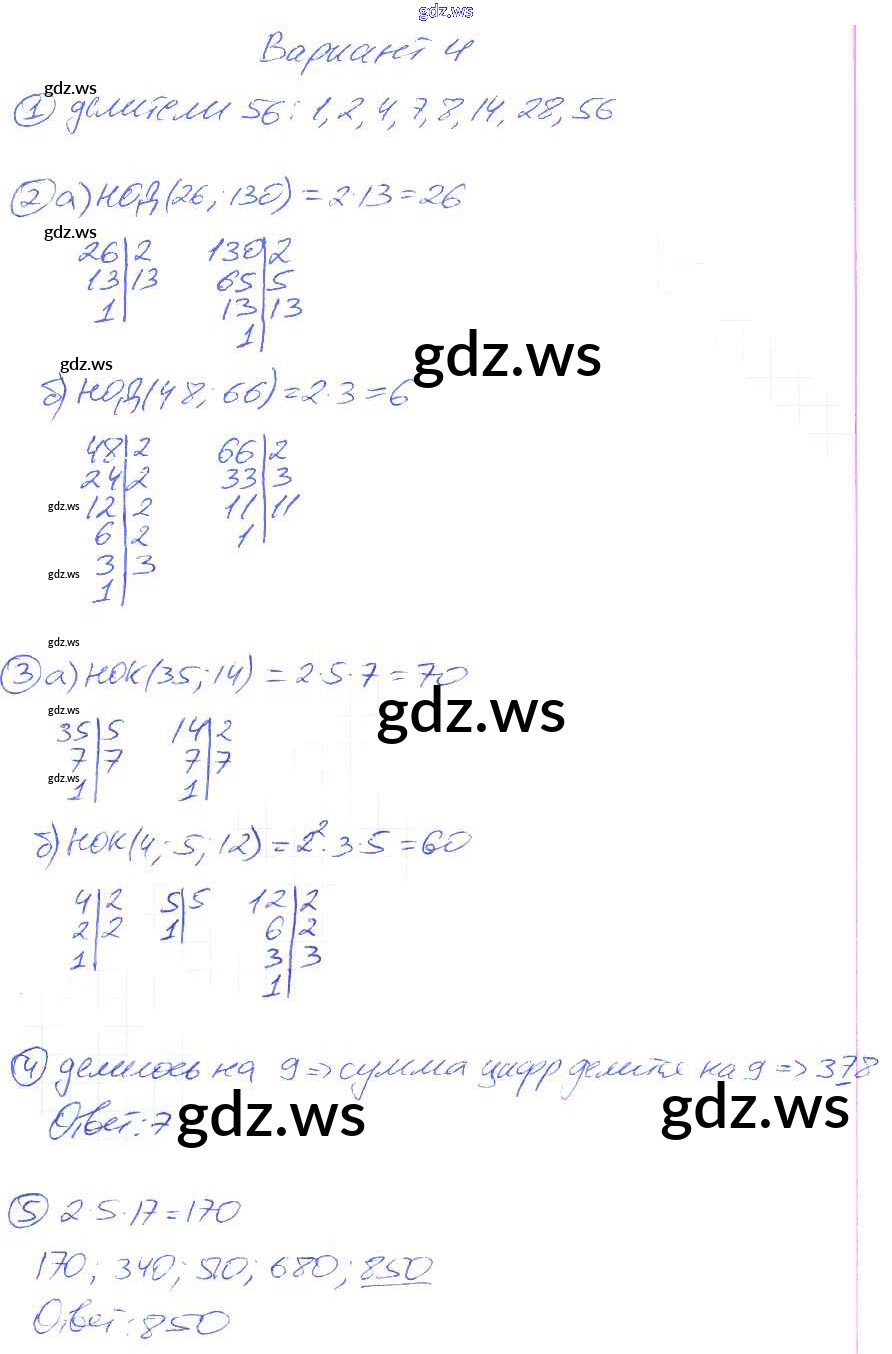 gdz.ws
Вариант 4
gdz.ws
① делители 56: 1, 2, 4, 7, 8, 14, 28, 56
② а) НОД(26; 130) = 2·13 = 26
gdz.ws
26|2 130|2
13|13 65|5
1| 13|13
1|
gdz.ws
gdz.ws
б) НОД(48; 66) = 2·3 = 6
48|2 66|2
24|2 33|3
gdz.ws 12|2 11|11
6|2 1|
gdz.ws 3|3
1|
gdz.ws
③ а) НОК(35; 14) = 2·5·7 = 70
gdz.ws gdz.ws
35|5 14|2
7|7 7|7
gdz.ws 1| 1|
б) НОК(4; 5; 12) = 2²·3·5 = 60
4|2 5|5 12|2
2|2 1| 6|2
1| 3|3
1|
④ делилось на 9 => сумма цифр делится на 9 => 378
gdz.ws
Ответ: 7 gdz.ws
⑤ 2·5·17 = 170
170; 340; 510; 680; 850
Ответ: 850